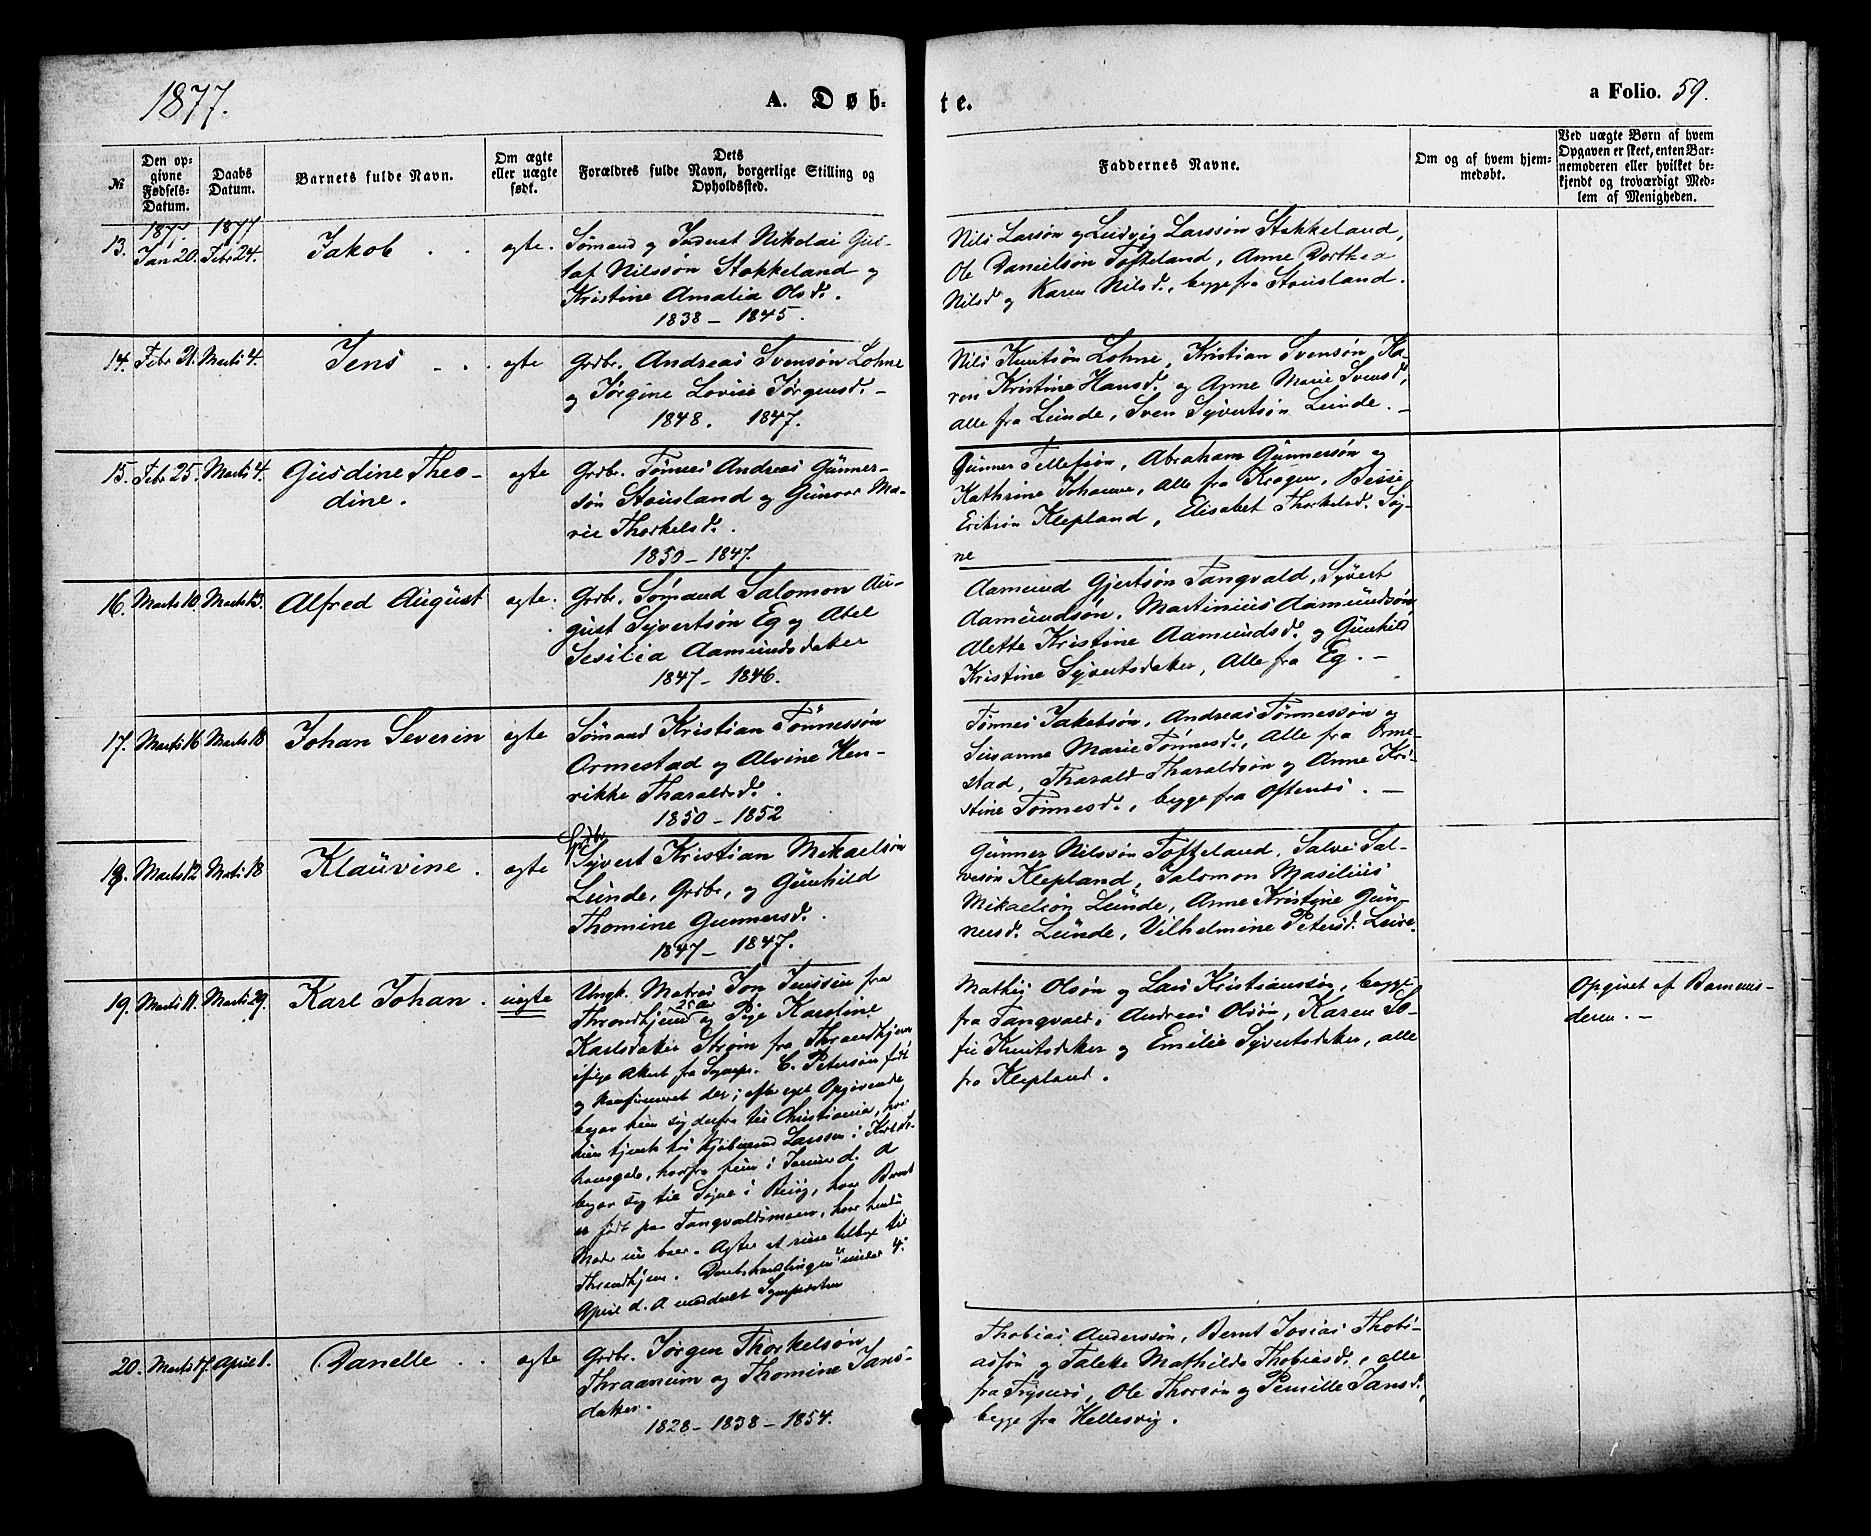 1877.
A. Døb-
te.
a Folio. 59.
№
Den op-
givne
Fødsels-
Datum.
Daabs
Datum.
Barnets fulde Navn.
Om ægte
eller uægte
født.
Dets
Forældres fulde Navn, borgerlige Stilling og
Opholdssted.
Faddernes Navne.
Om og af hvem hjem-
medøbt.
Ved uægte Børn af hvem
Opgaven er skeet, enten Bar-
nemoderen eller hvilket be-
kjendt og troværdigt Med-
lem af Menigheden.
1877. 1877
13. Jan 20. Febr 24. Jakob egte.
Sømand og Nikolai Gus-
taf Nilssøn Stokkeland og
Kristine Amalia Olsd.
1838 - 1845.
Nils Larsøn og Ludvig Larssøn Stokkeland,
Ole Danielsøn Tofteland, Anne Dorthea
Nilsd og Karen Nilsd., begge fra Stausland.
14. Febr 21. Marts 4. Jens egte
Grdbr. Andreas Svensøn Lohne
og Jørgine Lovise Jørgensd.
1848. 1847.
Nils Knutsøn Lohne, Kristian Svensøn, Ka-
ren Kristine Hansd. og Anne Marie Svensd,
alle fra Lunde, Sven Syvertsøn Lunde.
15. Febr 25. Marts 4. Gusdine Theo-
dine. egte
Grdbr. Tønnes Andreas Gunner-
søn Stausland og Gunvor Ma-
rie Thorkelsd.
1850 - 1847.
Gunner Tellefsøn, Abraham Gunnersøn og
Kathrine Johanne, alle fra Kragen,
Eriksøn Klepland, Elisabet Thorkelsd. Søg-
ne
16. Marts 10. Marts 15. Alfred August egte.
Grdbr. Sømand Salomon Au-
gust Syvertsøn Eg og Abel
Sesilia Aamundsdatter
1847 - 1846.
Aamund Gjertsøn Tangvald, Syvert
Aamundsøn, Martinius Aamundsøn,
Alette Kristine Aamundsd. og Gunhild
Kristine Syvertsdatter, alle fra Eg.
17. Marts 16 Marts 18 Johan Severin egte
Sømand Kristian Tønnessøn
Ormestad og Alvine Hen-
rikke Tharaldsd.
1850 - 1852
Tønnes Jakobsøn, Andreas Tønnessøn og
Susanne Marie Tønnesd., alle fra Orme-
stad, Tharald Tharaldsøn og Anne Kri-
stine Tønnesd., begge fra Oftenes.
18. Marts 12 Marts 18 Klauvine. egte
Syvert Kristian Mikaelsøn
Lunde, Grdbr., og Gunhild
Thomine Gunnersd.
1847 - 1847.
Gunner Nilssøn Tofteland, Salve Sal-
vesøn Klepland, Salomon Masilius
Mikaelsøn Lunde, Anne Kristine Gun-
nersd. Lunde, Vilhelmine Petersd. Leire.
19. Marts 11. Marts 29. Karl Johan. uegte
Ungk. Matros Jon Jenssen fra
Throndhjem og Pige Karoline
Karlsdatter Strøm fra Throndhjem
ifølge Attest fra Sogнepr. C. Petersen født
og konfirmeret der; efter eget Opgivende
begav hun sig derfra til Christiania, hvor
hun tjente hos Kjøbmand Larssen i
hvorfra hun i Januar d. A
begav sig til Søgne i Besøg, hvor Barnet
er født paa Tangvaldsmoen, hvor hendes
Moder nu boer. Agter at reise tilbage til
Throndhjem. under 4.
April d. A meddelt Sognepresten
Mathis Olsøn og Lars Kristianssøn, begge
fra Tangvald, Andreas Olsøn, Karen So-
fie Knutsdatter og Emilie Syvertsdatter, alle
fra Klepland.
Opgivet af Barnemo-
deren.
20. Marts 17. April 1. Danelle egte
Grdbr. Jørgen Thorkelsøn
Thraanum og Thomine Jans-
datter.
1828 - 1838 - 1854.
Thobias Anderssøn, Bernt Josias Thobi-
assøn og Taleke Mathilde Thobiasd., alle
fra Trysnes, Ole Thorsøn og Pernille Jansd,
begge fra Hellesvig.